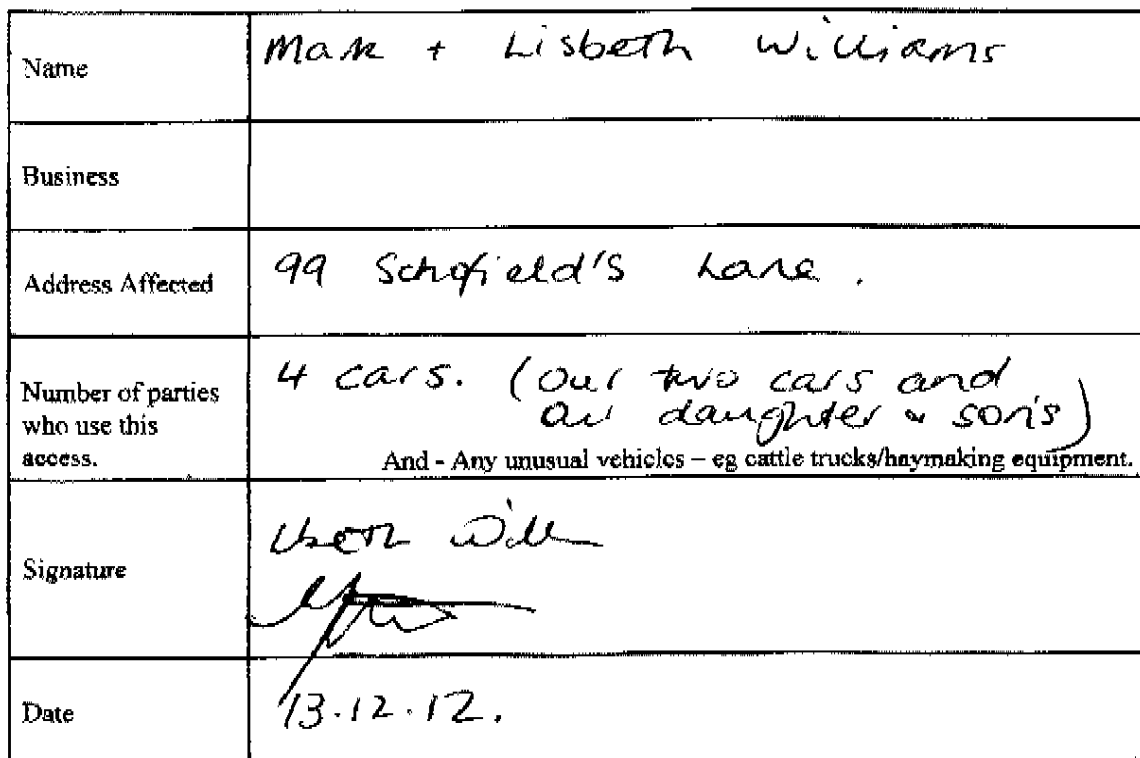 Name
Mark + Lisbeth Williams
Business
Address Affected
99 Schofield's Lane.
Number of parties
who use this
access.
4 cars. (Our two cars and
our daughter & son's)
And - Any unusual vehicles – eg cattle trucks/haymaking equipment.
Signature
Date
13.12.12.